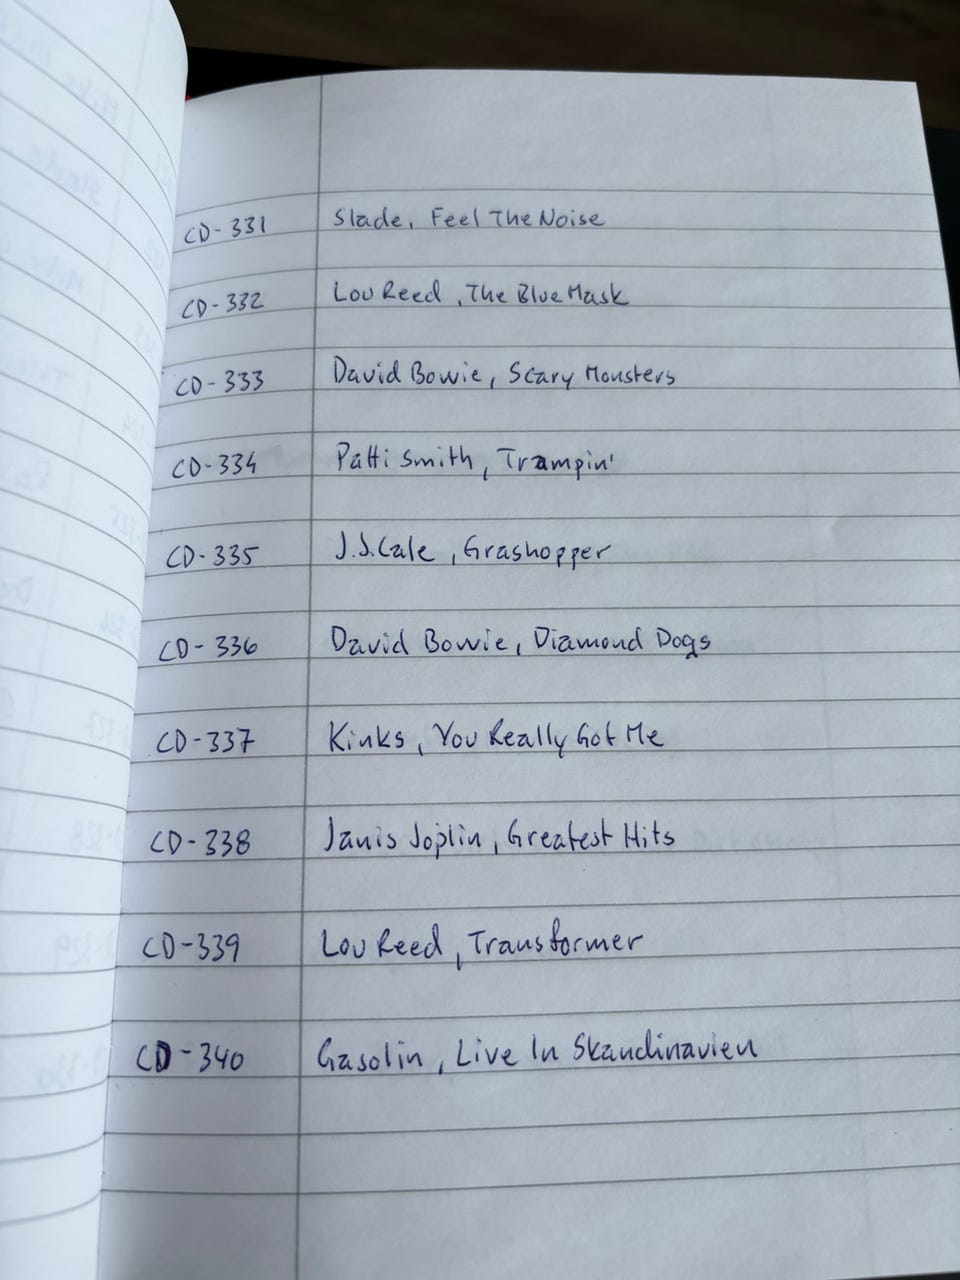 CD-331 Slade, Feel The Noise
CD-332 Lou Reed, The Blue Mask
CD-333 David Bowie, Scary Monsters
CD-334 Patti Smith, Trampin'
CD-335 J.J. Cale, Grashopper
CD-336 David Bowie, Diamond Dogs
CD-337 Kinks, You Really Got Me
CD-338 Janis Joplin, Greatest Hits
CD-339 Lou Reed, Transformer
CD-340 Gasolin, Live In Skandinavien